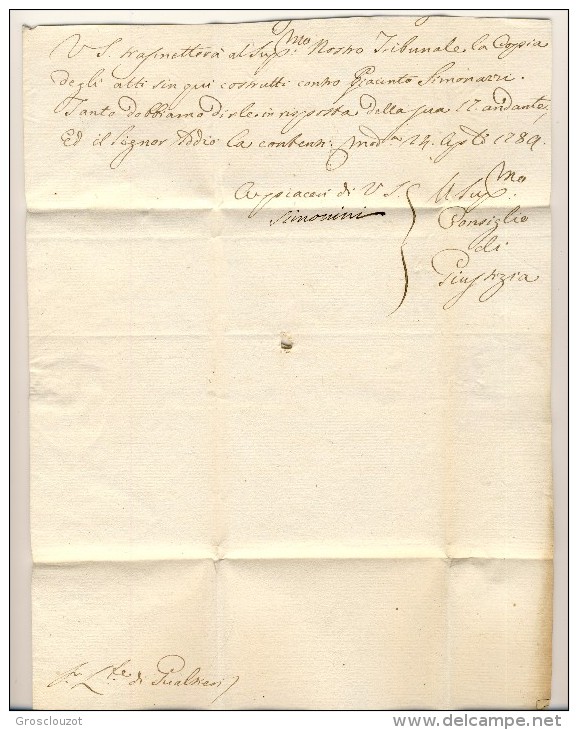 V S. trasmetterà al Sup.mo Nostro Tribunale la Coppia
degli atti sin qui costrutti contro Giacinto Simonazzi.
Tanto dobbiamo dirle in risposta della sua 17. andante,
Ed il Signor Iddio la contenti. Mod.a 24. Ag.to 1789.
A piaceri di V S.
Simonini
Il Sup.mo
Consiglio
di
Giustizia
Sr. L.te di Gualtieri
Grosclouzot
www.delcampe.net